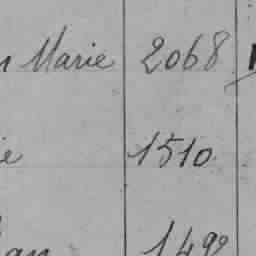 Marie 2068
ie 1510
an 149